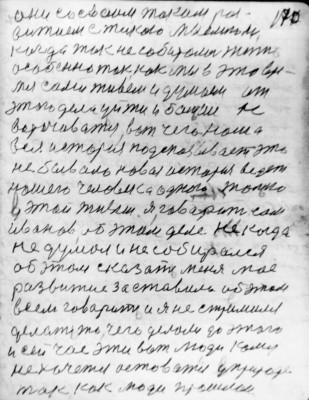 170
они со своим таким раз-
витием с такого мнения,
когда так не собирались жить
особенно так как мы в это вре-
мя сами живем и думаем от
этого дела уйти и больше н
ворочивати, вот чего наша
вся история подсказывает это
не бывало новая история ведет
нашего человека одного только
и этой живем. Я говорит сам
иванов об этом деле некогда
не думал и не собирался
об этом сказати меня мое
развитие заставило об этом
всем говорити и я не стремился
делати то, чего делали до этого
и сейчас эти вот люди кому
не хочется оставати в природе
так как люди прошлом